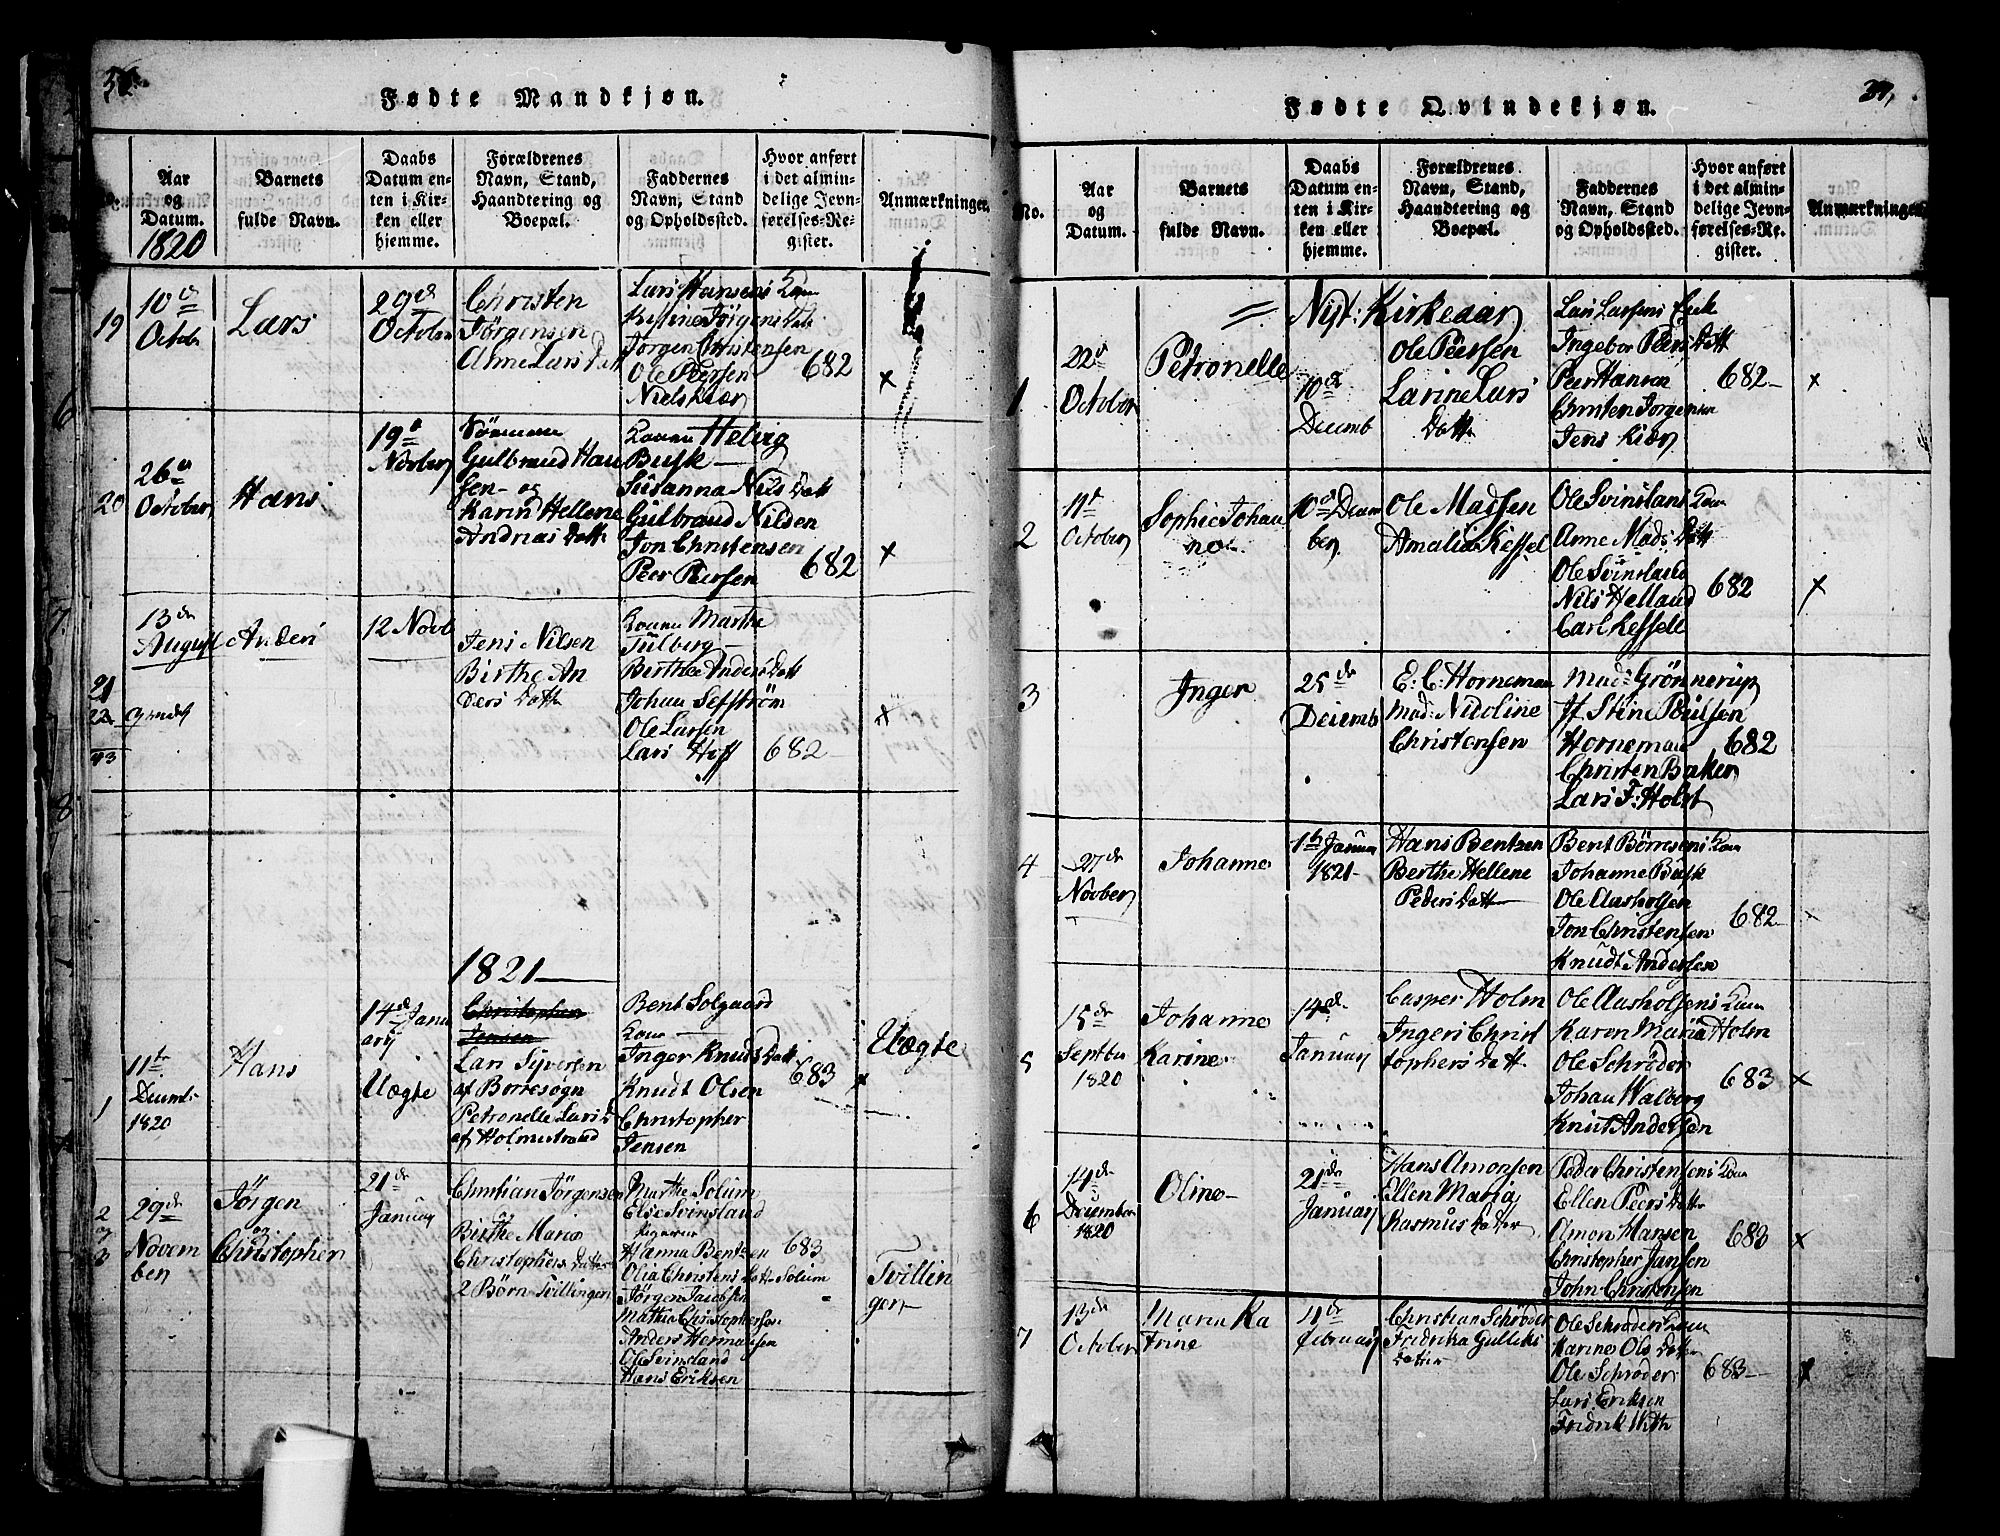 Fødte Mandkjøn.
Aar
og
Datum.
1820
Barnets
fulde Navn.
Daabs
Datum en-
ten i Kir-
ken eller
hjemme.
Forældrenes
Navn, Stand,
Haandtering og
Boepæl.
Faddernes
Navn, Stand
og Opholdssted.
Hvor anført
i det almin-
delige Jevn-
førelses-Re-
gister.
Anmærkninger.
19
10de
Octobr
Lars
29de
October
Christen
Jörgensen
Anne Lars Datt
Lars Hansens Kone
Kistine Jörgens Datt
Jörgen Christensen
Ole Peersen
Niels Kiær
682
x
20
26de
October
Hans
19de
Novber
Gulbrand Han
sen og
Karin Hellene
Andreas Datt
Konen Helvig
Busk
Susanna Nils Datt
Gulbrand Nilsen
Jon Christensen
Peer Peersen
682
x
21
13de
August
Anders
12 Novb
Jens Nilsen
Birthe An
ders Datt
Konen Marthe
Tulberg
Berthe Anders Datt
Johan Sefström
Ole Larsen
Lars Hoff
682
x
22
43
1821
1
11te
Decemb
1820
Hans
14de Janu
ary
Uægte
Christophen
Jensen
Lars Syversen
af Borresogn
Petronelle Lars D
af Holmestrand
Bent Solgaard
Kone
Inger Knuds Datt
Knudt Olsen
Christopher
Jensen
683
x
Uægte
2
og
3
29de
Novem
ber
Jörgen
og
Christopher
21de
January
Christian Jörgensen
og
Birthe Maria
Christophers Datter
2 Börn Tvillinger
Marthe Solum
Else Svinsland
Hanna Bentzen
Olia Christens Datt Solum
Jörgen Jacobsen
Mathia Christophersen
Anders Hermansen
Ole Svinsland
Hans Eriksen
683
Tvillin
ger
Fødte Qvindekjøn.
No.
Aar
og
Datum.
Barnets
fulde Navn.
Daabs
Datum en-
ten i Kir-
ken eller
hjemme.
Forældrenes
Navn, Stand,
Haandtering og
Boepæl.
Faddernes
Navn, Stand
og Opholdssted.
Hvor anført
i det almin-
delige Jevn-
førelses-Re-
gister.
Anmærkninger
Nyt: Kirkeaar
1
22de
October
Petronelle
10de
Decemb
Ole Peersen
Larine Lars
Datt
Lars Larsens Enk
Ingebor Peers Datt
Peer Hansen
Christen Jörgensen
Jens Kiær
682
x
2
11te
October
Sophie Johan
ne
10de Decem
ber
Ole Madsen
Amalia Kessel
Ole Svinslands Kone
Anne Mads Datt
Ole Svinsland
Nils Helland
Carl Kessell
682
x
3
Inger
25de
Decemb
E: C: Horneman
Mad: Nicoline
Christensen
Mad: Grönnerup
Jf. Stine Poulsen
Horneman
Christen Baker
Lars F: Holst
682
4
27de
Novber
Johanne
1te Januar
1821
Hans Bentzen
Berthe Hellene
Peders Datt
Bent Börresens Kone
Johanne Busk
Ole Aasholsen
Jon Christensen
Knudt Andersen
682
x
5
15de
Septbr
1820
Johanne
Karine
14de
January
Casper Holm
Ingers Christ
tophers Datt
Ole Aasholsens Kone
Karen Maria Holm
Ole Schröder
Johan Walberg
Knut Andersen
683
x
6
14de
December
1820
Oline
21de
January
Hans Amonsen
Ellen Maria
Rasmus Datter
Peder Christensens Kone
Ellen Peers Datter
Amon Hansen
Christopher Jansen
John Christensen
683
x
7
13de
October
Maria Ka
trine
11de
February
Christian Schröder
Fredrika Gulliks
Datter
Ole Schröders Kone
Karine Ols Datter
Ole Schröder
Lars Eriksen
Fredrik With
683
x